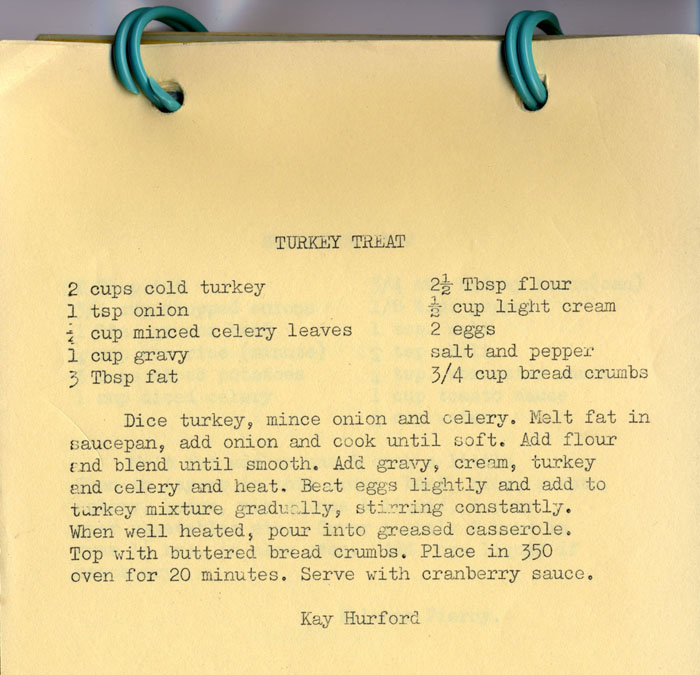 TURKEY TREAT
2 cups cold turkey
1 tsp onion
cup minced celery leaves
1 cup gravy
3 Tbsp fat
2½ Tbsp flour
½ cup light cream
2 eggs
salt and pepper
3/4 cup bread crumbs
Dice turkey, mince onion and celery. Melt fat in
saucepan, add onion and cook until soft. Add flour
and blend until smooth. Add gravy, cream, turkey
and celery and heat. Beat eggs lightly and add to
turkey mixture gradually, stirring constantly.
When well heated, pour into greased casserole.
Top with buttered bread crumbs. Place in 350
oven for 20 minutes. Serve with cranberry sauce.
Kay Hurford